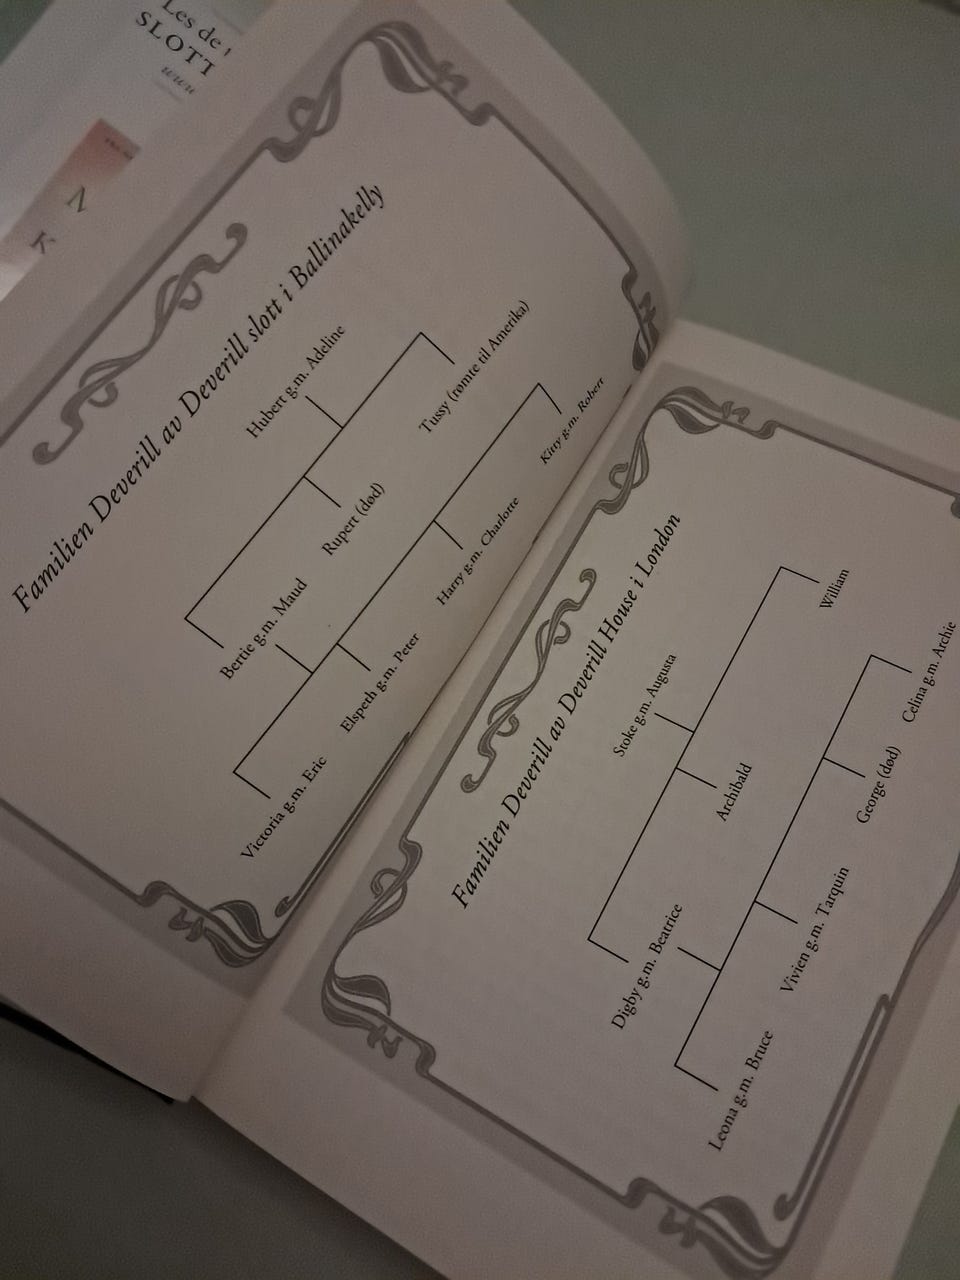 Les de
SLOTT
www
N
K
Familien Deverill av Deverill slott i Ballinakelly
Hubert g.m. Adeline
Bertie g.m. Maud
Rupert (død)
Tussy (rømte til Amerika)
Victoria g.m. Eric
Elspeth g.m. Peter
Harry g.m. Charlotte
Kitty g.m. Robert
Familien Deverill av Deverill House i London
Stoke g.m. Augusta
Digby g.m. Beatrice
Archibald
William
Leona g.m. Bruce
Vivien g.m. Tarquin
George (død)
Celina g.m. Archie